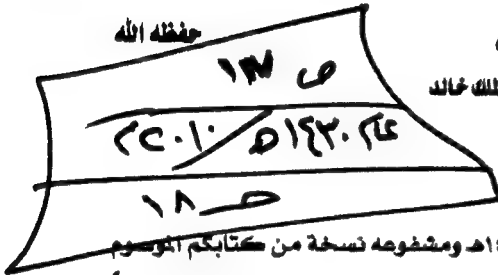 حفظه الله
لك خالد
عام ١٤٣٠هـ / ٢٠١٠م
صـ ١٨
١هـ ومشفوعه نسخة من كتابكم الموسوم